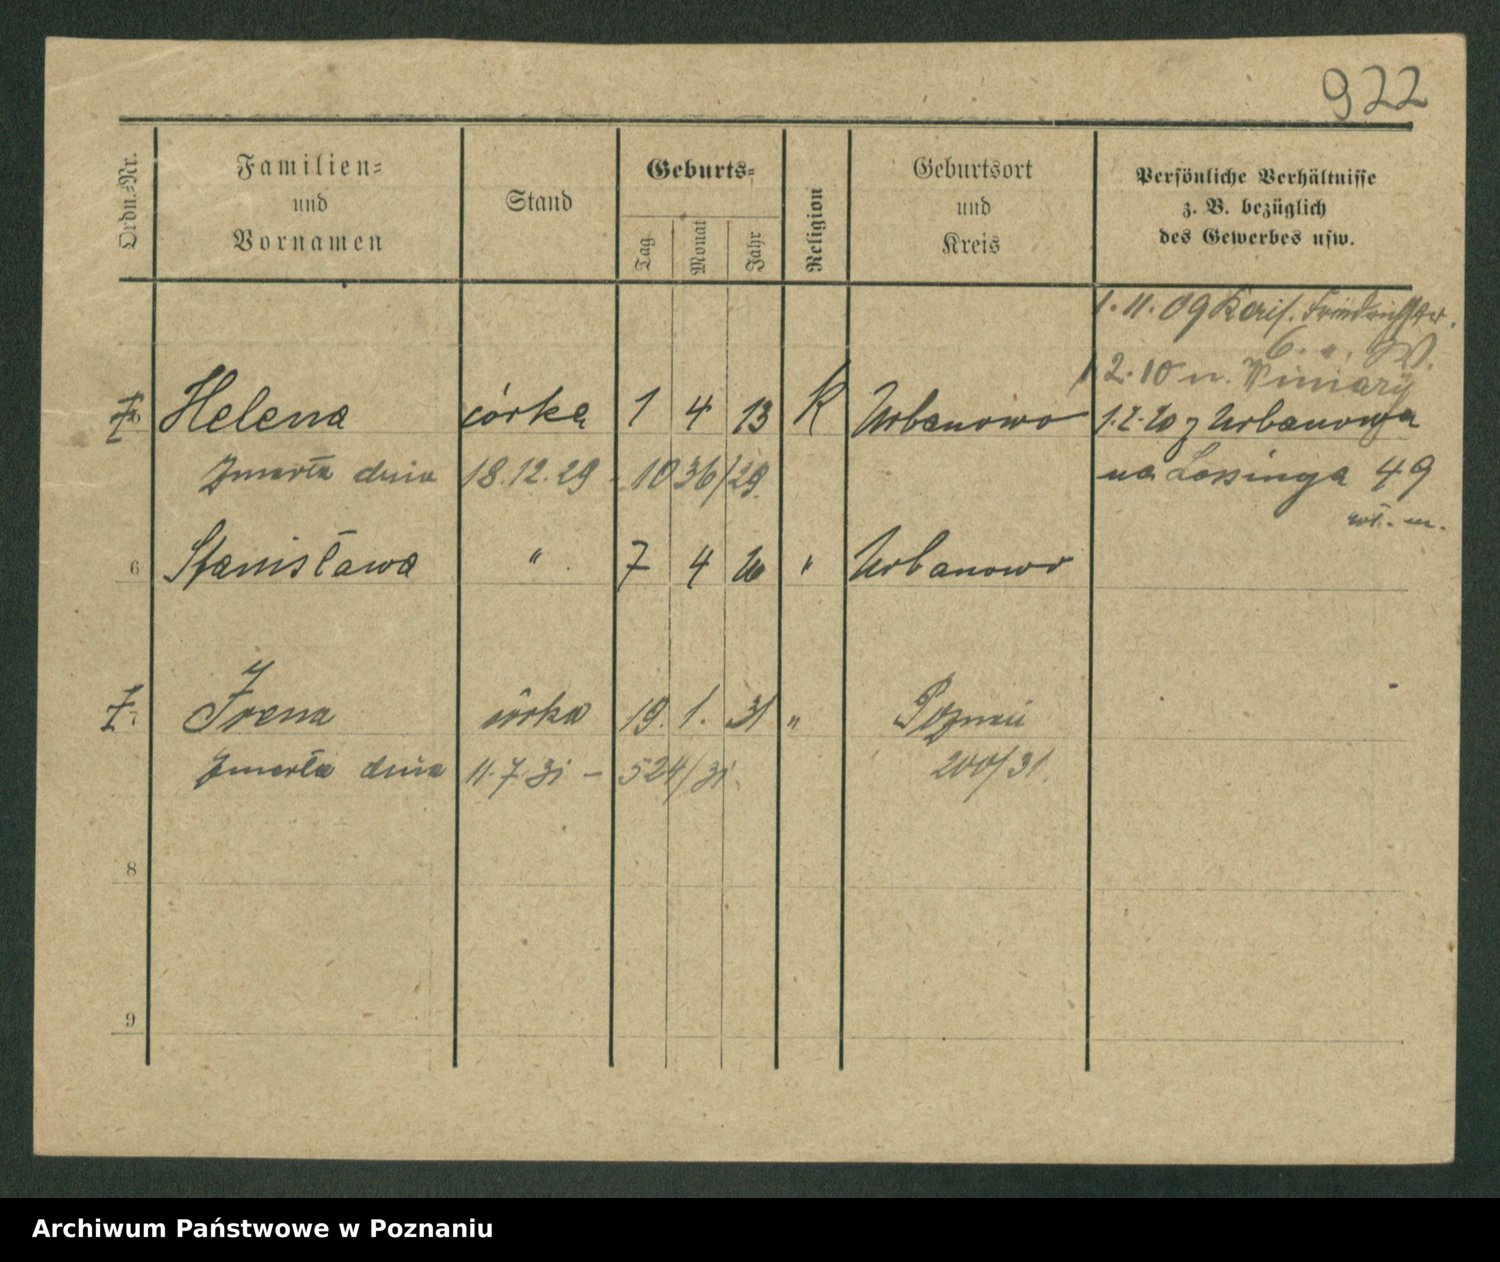 922
Ordn.=Nr.
Familien=
und
Vornamen
Stand
Geburts=
Tag
Monat
Jahr
Religion
Geburtsort
und
Kreis
Persönliche Verhältnisse
z. B. bezüglich
des Gewerbes usw.
1. 11. 09 Friedrichstr.
2. 10 n. Winiary
Helena córka 1 4 13 K Urbanowo 1. 2. 20 z Urbanowa
Zmarła dnia 18.12.29 - 1036/29. na Lessinga 49
6 Stanisława " 7 4 20 " Urbanowo
7 Irena córka 19. 1. 31 " Poznań
Zmarła dnia 11.7.31 - 524/31. 200/31.
8
9
Archiwum Państwowe w Poznaniu